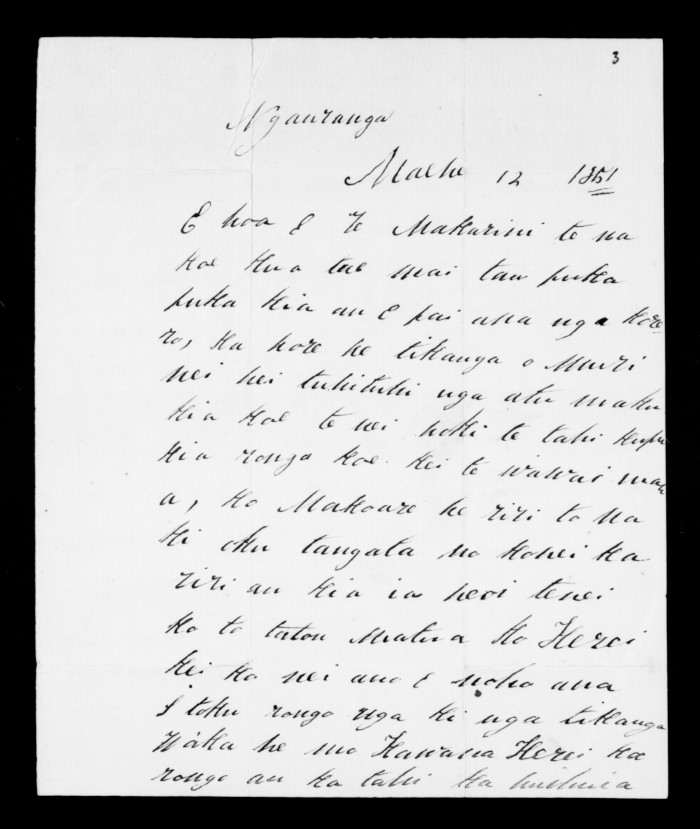 3
Ngauranga
Maehe 12 1851
E hoa E Te Makarini te na
koe kua tae mai tau puka
puka kia au E pai ana nga kore
ro, Ka hore he tikanga o Muri
nei hei tuhituhi nga atu maku
kia koe te nei hoki te tahi kupu
kia rongo koe kei te wawai ma
a, ko Makoare he riri to na
ki oku tangata no konei ka
riri au kia ia heoi tenei
ko to tatou Matua ko Herei
kei ko nei ano E noho ana
I toku rongo nga ki nga tikanga
Waka he mo Kawana Herei ka
rongo au ka tahi ka huihuia